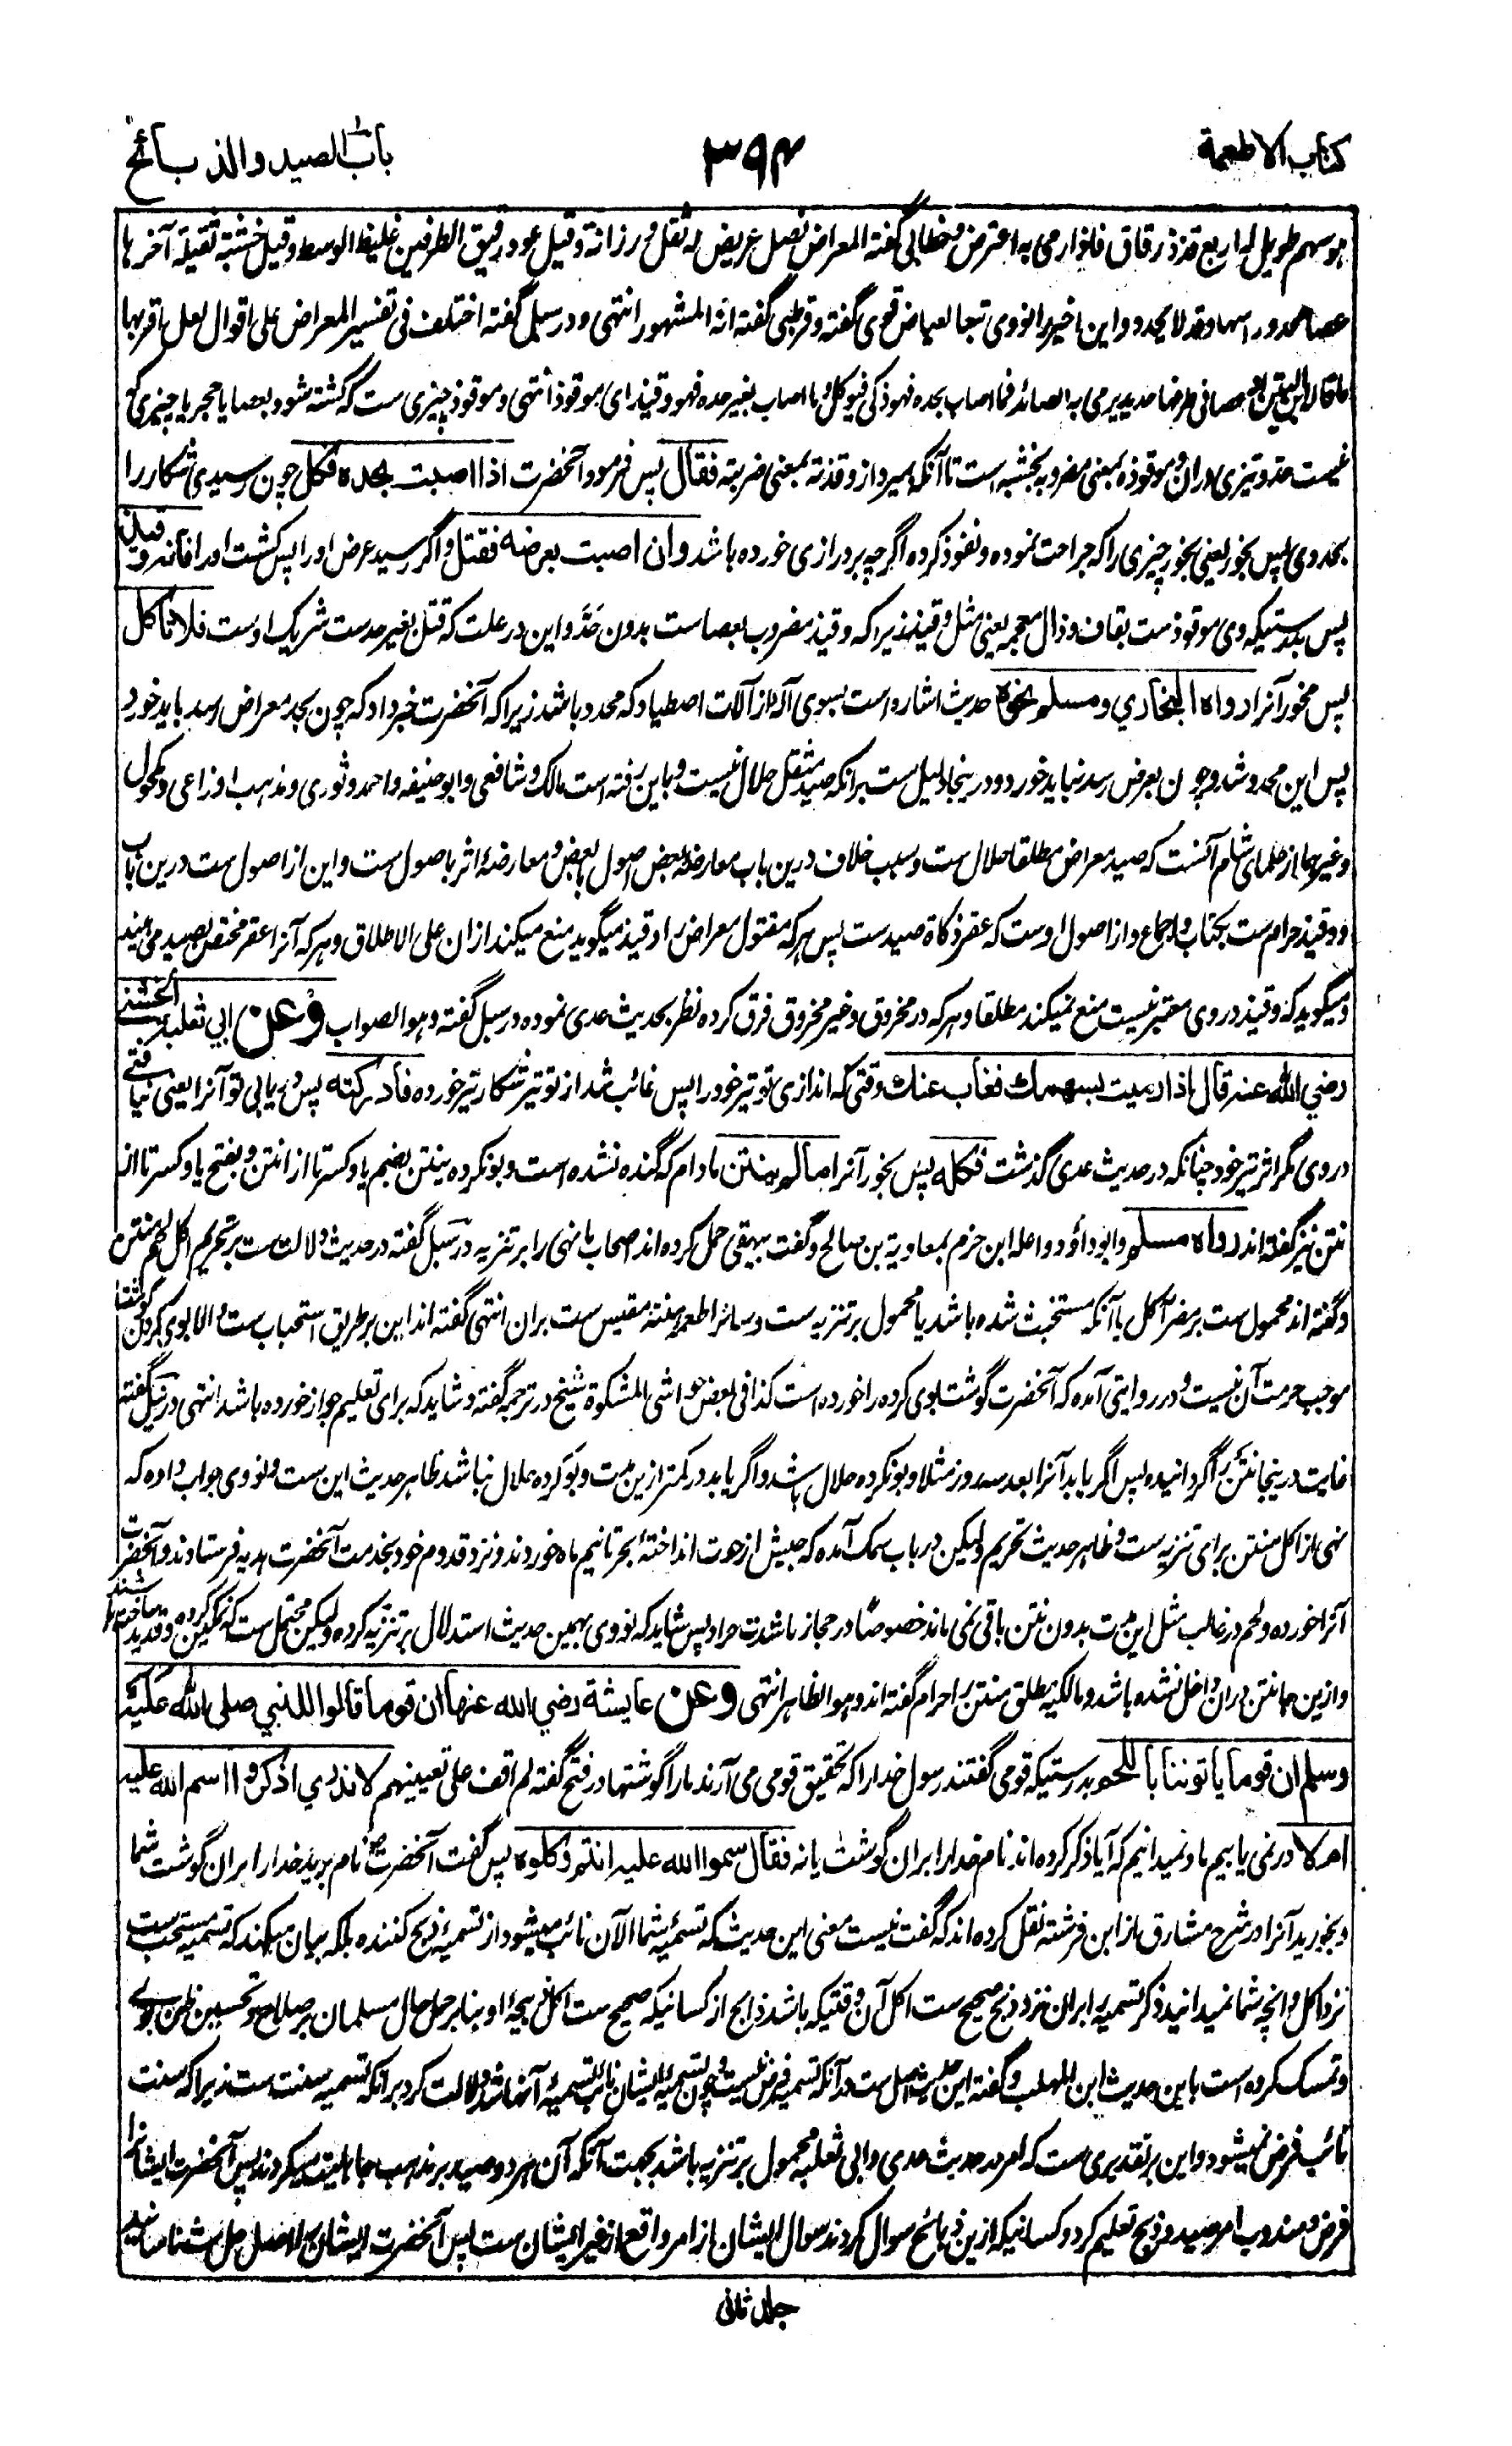 كتاب الاطعمة
۳۹۴
باب الصيد والذبائح
هو سهم طويل له اربع قذذ رقاق فاذا رمى به اعترض وخطابى گفته المعراض نصل عريض له ثقل ورزانة وقيل عود رقيق الطرفين غليظ الوسط وقيل خشبة ثقيلة آخرها
عصا محدد راسها وقد لا يحدد واين اخير را نووى تبعا لعياض قوى گفته وقرطبى گفته انه المشهور انتهى ودر سبل گفته اختلف فى تفسير المعراض على اقوال لعل اقربها
ما قاله ابن التين انه عصا فى طرفها حديدة يرمى به الصائد فما اصاب بحده فهو ذكى فيؤكل وما اصاب بغير حده فهو وقيذ اى موقوذ انتهى وموقوذ چيزى ست كه كشته شود بعصا يا حجر يا چيزى كه
نيست حد وتيزى در آن وموقوذه بمعنى مضروبه بخشبه است تا آنكه بميرد از وقذته بمعنى ضربته فقال پس فرمود آنحضرت اذا اصبت بحده فكل چون رسيدى شكار را
بحد وى پس بخور يعنى بخور چيزى را كه جراحت نموده ونفوذ كرده اگرچه بر درازى خورده باشد وان اصبت بعرضه فقتل واگر رسيد عرض او را پس كشت او را فانه وقيذ
پس بدرستيكه وى موقوذ ست بقاف وذال معجمه يعنى مثل وقيذ زيرا كه وقيذ مضروب بعصا ست بدون حد واين در علت كه قتل بغير حد ست شريك اوست فلا تاكل
پس مخور آنرا رواه البخاري ومسلم نحوه حديث اشاره است بسوى آله از آلات اصطياد كه محدد باشد زيرا كه آنحضرت خبر داد كه چون بحد معراض رسد بايد خورد
پس اين محدد شد وچون بعرض رسد نبايد خورد ودرينجا دليل ست بر آنكه صيد مثقل حلال نيست وباين رفته است مالك وشافعى وابو حنيفه واحمد وثورى ومذهب اوزاعى ومكحول
وغيرهما از علماى شام آنست كه صيد معراض مطلقا حلال ست وسبب خلاف درين باب معارضه بعض اصول ببعض ومعارضه اثر باصول ست واين از اصول ست درين باب
ووقيذ حرام ست بكتاب واجماع واز اصول اوست كه عقر ذكاة صيد ست پس هر كه مقتول معراض را وقيذ ميگويد منع ميكند ازان على الاطلاق وهر كه آنرا عقر مختص بصيد مى بيند
وميگويد كه وقيذ در وى معتبر نيست منع نميكند مطلقا وهر كه در مخروق وغير مخروق فرق كرده نظر بحديث عدى نموده در سبل گفته وهو الصواب وعن ابي ثعلبة الخشني
رضي الله عنه قال اذا رميت بسهمك فغاب عنك وقتى كه اندازى تو تير خود را پس غائب شد از تو تير شكار تير خورده فادركته پس دريابى تو آنرا يعنى نيافتى
در وى مگر اثر تير خود چنانكه در حديث عدى گذشت فكله پس بخور آنرا ما لم ينتن مادام كه گنده نشده است وبو نكرده ينتن بضم يا وكسر تا از انتن وبفتح يا وكسر تا از
نتن نيز گفته اند رواه مسلم وابو داؤد واعله ابن حزم بمعاوية بن صالح وگفت بيهقى حمل كرده اند اصحاب ما نهى را بر تنزيه در سبل گفته در حديث دلالت ست بر تحريم اكل لحم منتن
وگفته اند محمول ست بر مضر آكل يا آنكه مستخبث شده باشد يا محمول بر تنزيه ست وسائر اطعمه منتنه مقيس ست بران انتهى گفته اند اين بر طريق استحباب ست والا بوى كردن گوشت
موجب حرمت آن نيست ودر روايتى آمده كه آنحضرت گوشت بوى كرده را خورده است كذا فى بعض حواشى المشكوة شيخ در ترجمه گفته وشايد كه براى تعليم جواز خورده باشد انتهى در نيل گفته
غايت درينجا نتن را گردانيده پس اگر يابد آنرا بعد سه روز مثلا وبو نكرده حلال باشد واگر يابد در كمتر ازين مدت وبو كرده حلال نباشد ظاهر حديث اين ست ونووى جواب داده كه
نهى از اكل منتن براى تنزيه ست وظاهر حديث تحريم وليكن در باب سمك آمده كه جيش از حوت انداخته بحر تا نيم ماه خوردند ونزد قدوم خود بخدمت آنحضرت هديه فرستادند وآنحضرت
آنرا خورده ولحم در غالب مثل اين مدت بدون نتن باقى نمى ماند خصوصا در حجاز با شدت حرا و پس شايد كه نووى بهمين حديث استدلال بر تنزيه كرده وليكن محتمل ست كه نمكين كرده وقديد ساخته باشند
وازين جا نتن دران داخل نشده باشد ومالكيه مطلق منتن را حرام گفته اند وهو الظاهر انتهى وعن عايشة رضي الله عنها ان قوما قالوا للنبي صلى الله عليه
وسلم ان قوما ياتوننا باللحم بدرستيكه قومى گفتند رسول خدا را كه تحقيق قومى مى آرند ما را گوشتها در فتح گفته لم اقف على تعيينهم لا ندري اذكروا اسم الله عليه
ام لا در نمى يابيم ما ونميدانيم كه آيا ذكر كرده اند نام خدا را بران گوشت يا نه فقال سموا الله عليه انتم وكلوه پس گفت آنحضرت نام بريد خدا را بران گوشت شما
وبخوريد آنرا در شرح مشارق از ابن فرشته نقل كرده اند كه گفت نيست معنى اين حديث كه تسميه شما الآن نائب ميشود از تسميه ذبح كننده بلكه بيان ميكند كه تسميه مستحب ست
نزد اكل وانچه شما نميدانيد ذكر تسميه بران نزد ذبح صحيح ست اكل آن وقتيكه باشد ذابح از كسانيكه صحيح ست اكل ذبيحه او بنابر حمل حال مسلمان بر صلاح وتحسين ظن بوى
وتمسك كرده است باين حديث ابن المهلب وگفته اين حديث اصل ست در آنكه تسميه فرض نيست وچون تسميه ايشان نائب تسميه آنها شد دلالت كرد بر آنكه تسميه سنت ست زيرا كه سنت
نائب فرض نميشود واين بر تقديرى ست كه امر در حديث عدى وابى ثعلبه محمول بر تنزيه باشد بجهت آنكه آن هر دو صيد بر مذهب جاهليت ميكردند پس آنحضرت ايشانرا
فرض ومندوب امر صيد وذبح تعليم كرد وكسانيكه ازين ذبائح سوال كردند سوال ايشان از امر واقع از غير ايشان ست پس آنحضرت ايشان را اصل حل شناسانيد
جلد ثانى